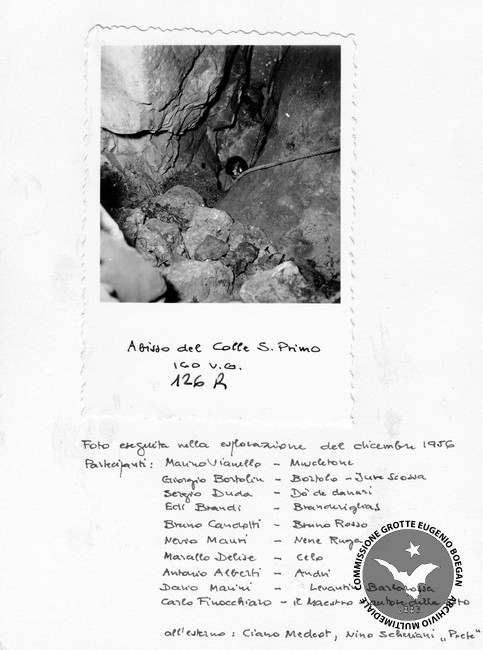 Abisso del Colle S. Primo
160 V.G.
126 R
Foto eseguita nella esplorazione del dicembre 1956
Partecipanti: Marino Vianello - Muceletone
Giorgio Bortolin - Bortolo - Jure Scossa
Sergio Duda - Dò de danari
Edi Brandi - Brandiviglias
Bruno Candotti - Bruno Rosso
Nevio Mauri - Nene Ruga
Marallo Delise - Celo
Antonio Alberti - Andri
Dario Marini - Levantin Barbarossa
Carlo Finocchiaro - il Maestro
all'esterno: Ciano Medeot, Nino Scheriani "Prete"
COMMISSIONE GROTTE EUGENIO BOEGAN
ARCHIVIO MULTIMEDIALE
1883